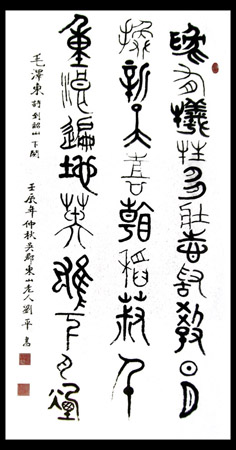 為有犧牲多壯志敢教日月
換新天喜看稻菽千
重浪遍地英雄下夕煙
毛澤東詩到韶山下闋
壬辰年仲秋吳郡東山老人劉平書